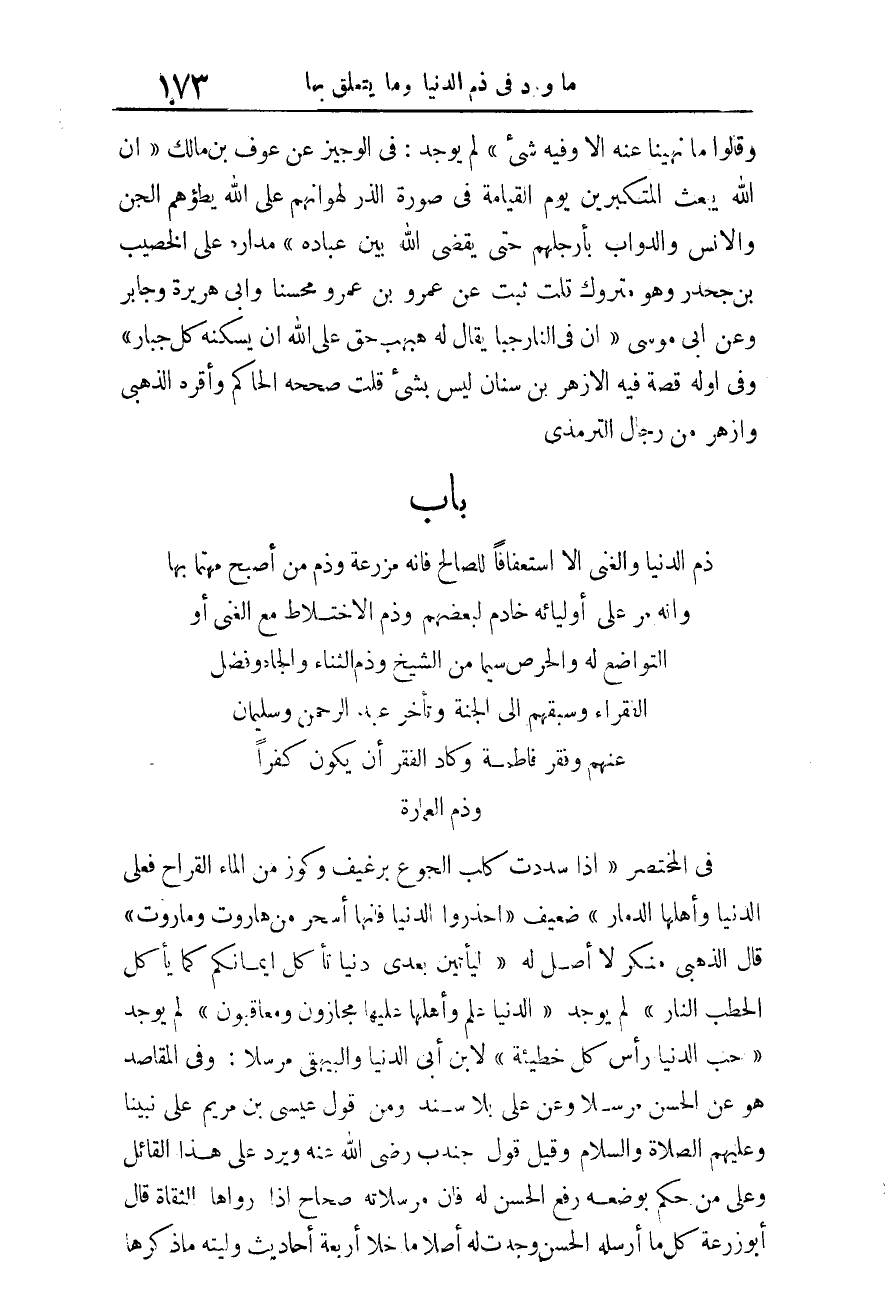 ما ورد فى ذم الدنيا وما يتعلق بها ١٧٣
وقالوا ما نهينا عنه الا وفيه شىء » لم يوجد : فى الوجيز عن عوف بن مالك « ان
الله يبعث المتكبرين يوم القيامة فى صورة الذر لهوانهم على الله يطؤهم الجن
والانس والدواب بأرجلهم حتى يقضى الله بين عباده » مداره على الخصيب
بن جحدر وهو متروك قلت ثبت عن عمرو بن عمرو محسنا وابى هريرة وجابر
وعن ابى موسى « ان فى النار جبا يقال له هبهب حق على الله ان يسكنه كل جبار »
وفى اوله قصة فيه الازهر بن سنان ليس بشىء قلت صححه الحاكم وأقره الذهبى
وازهر من رجال الترمذى
باب
ذم الدنيا والغنى الا استعفافاً للصالح فانه مزرعة وذم من أصبح مهتما بها
وانه مر على أوليائه خادم لبعضهم وذم الاختـلاط مع الغنى أو
التواضع له والحرص سيما من الشيخ وذم الثناء والجاه وفضل
الفقراء وسبقهم الى الجنة وتأخر عبد الرحمن وسليمان
عنهم وفقر فاطمـة وكاد الفقر أن يكون كفراً
وذم العمارة
فى المختصر « اذا سددت كلب الجوع برغيف وكوز من الماء القراح فعلى
الدنيا وأهلها الدمار » ضعيف « احذروا الدنيا فانها أسحر من هاروت وماروت »
قال الذهبى منكر لا أصـل له « ليأتين بعدى دنيا تأكل ايمـانكم كما يأكل
الحطب النار » لم يوجد « الدنيا حلم وأهلها عليها مجازون ومعاقبون » لم يوجد
« حب الدنيا رأس كل خطيئة » لابن أبى الدنيا والبيهقى مرسلا : وفى المقاصد
هو عن الحسن مرسـلا وعن على بلا سـند ومن قول عيسى بن مريم على نبينا
وعليهم الصلاة والسلام وقيل قول جندب رضى الله عنه ويرد على هـذا القائل
وعلى من حكم بوضعـه رفع الحسن له فان مرسلاته صحاح اذا رواها الثقاة قال
أبو زرعة كل ما أرسله الحسن وجدت له أصلا ما خلا أربعة أحاديث وليته ما ذكرها